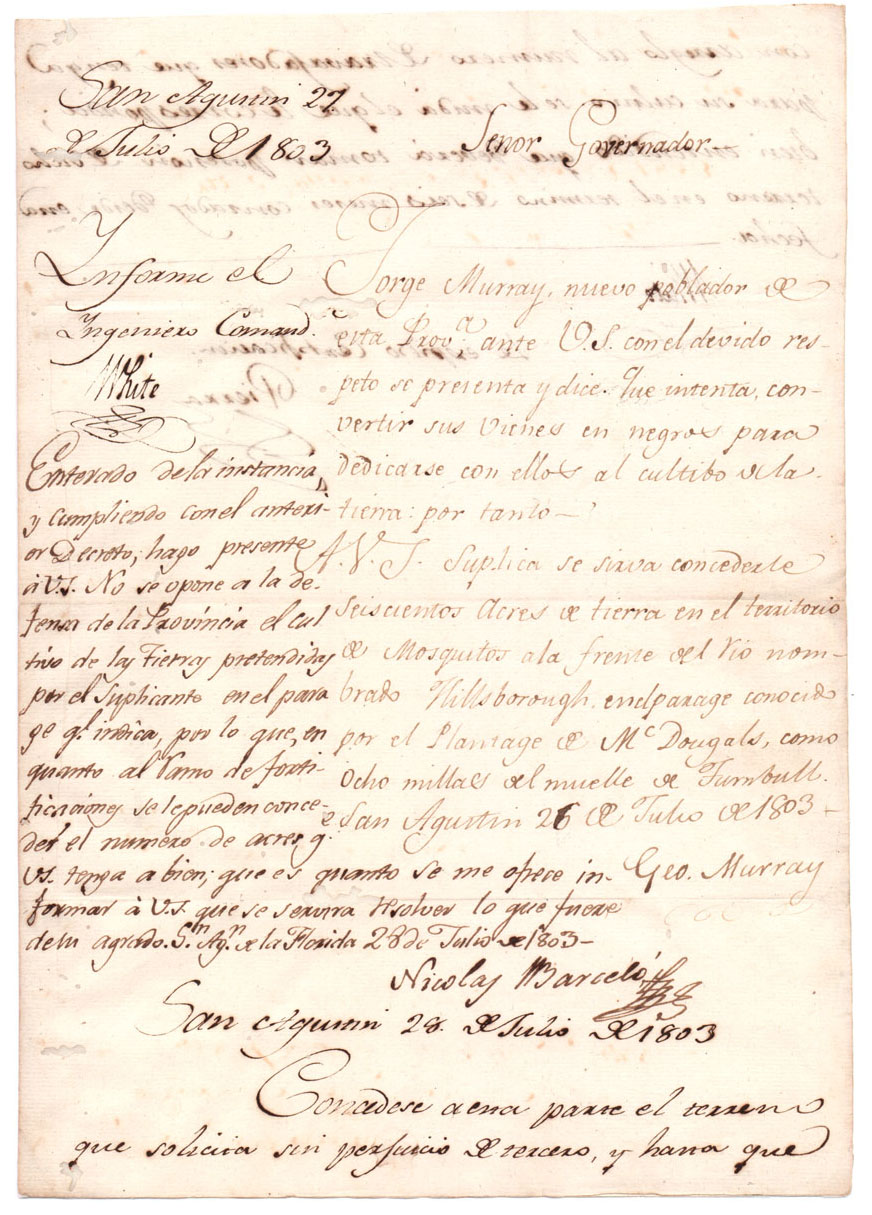 San Agustin 27
de Julio de 1803
Señor Governador
Informe el
Ingeniero Comand.te
White
Jorge Murray, nuevo poblador de
esta Prov.a ante V.S. con el devido res-
peto se presenta y dice. Que intenta, con-
vertir sus vienes en negros para
dedicarse con ellos al cultibo de la
tierra: por tanto—
A. V. S. suplica se sirva concederle
seiscientos Acres de tierra en el territorio
de Mosquitos a la frente del rio nom-
brado Hillsborough, en el parage conocido
por el Plantage de Mc Dougals, como
ocho millas del muelle de Turnbull.
San Agustin 26 de Julio de 1803—
Geo. Murray
Enterado de la instancia,
y cumpliendo con el anteri-
or Decreto; hago presente
à V.S. No se opone a la de-
fensa de la Provincia el cul
tivo de las Tierras pretendidas
por el suplicante en el para
ge q.e indica, por lo que, en
quanto al Ramo de forti-
ficaciones se le pueden conce-
der el numero de acres q.e
V.S. tenga a bien; que es quanto se me ofrece in-
formar à V.S. que se servira resolver lo que fuere
de su agrado. S.n Ag.n de la Florida 28 de Julio de 1803—
Nicolas Barceló
San Agustin 28 de Julio de 1803
Concedese a esta parte el terreno
que solicita sin perjuicio de tercero, y hasta que